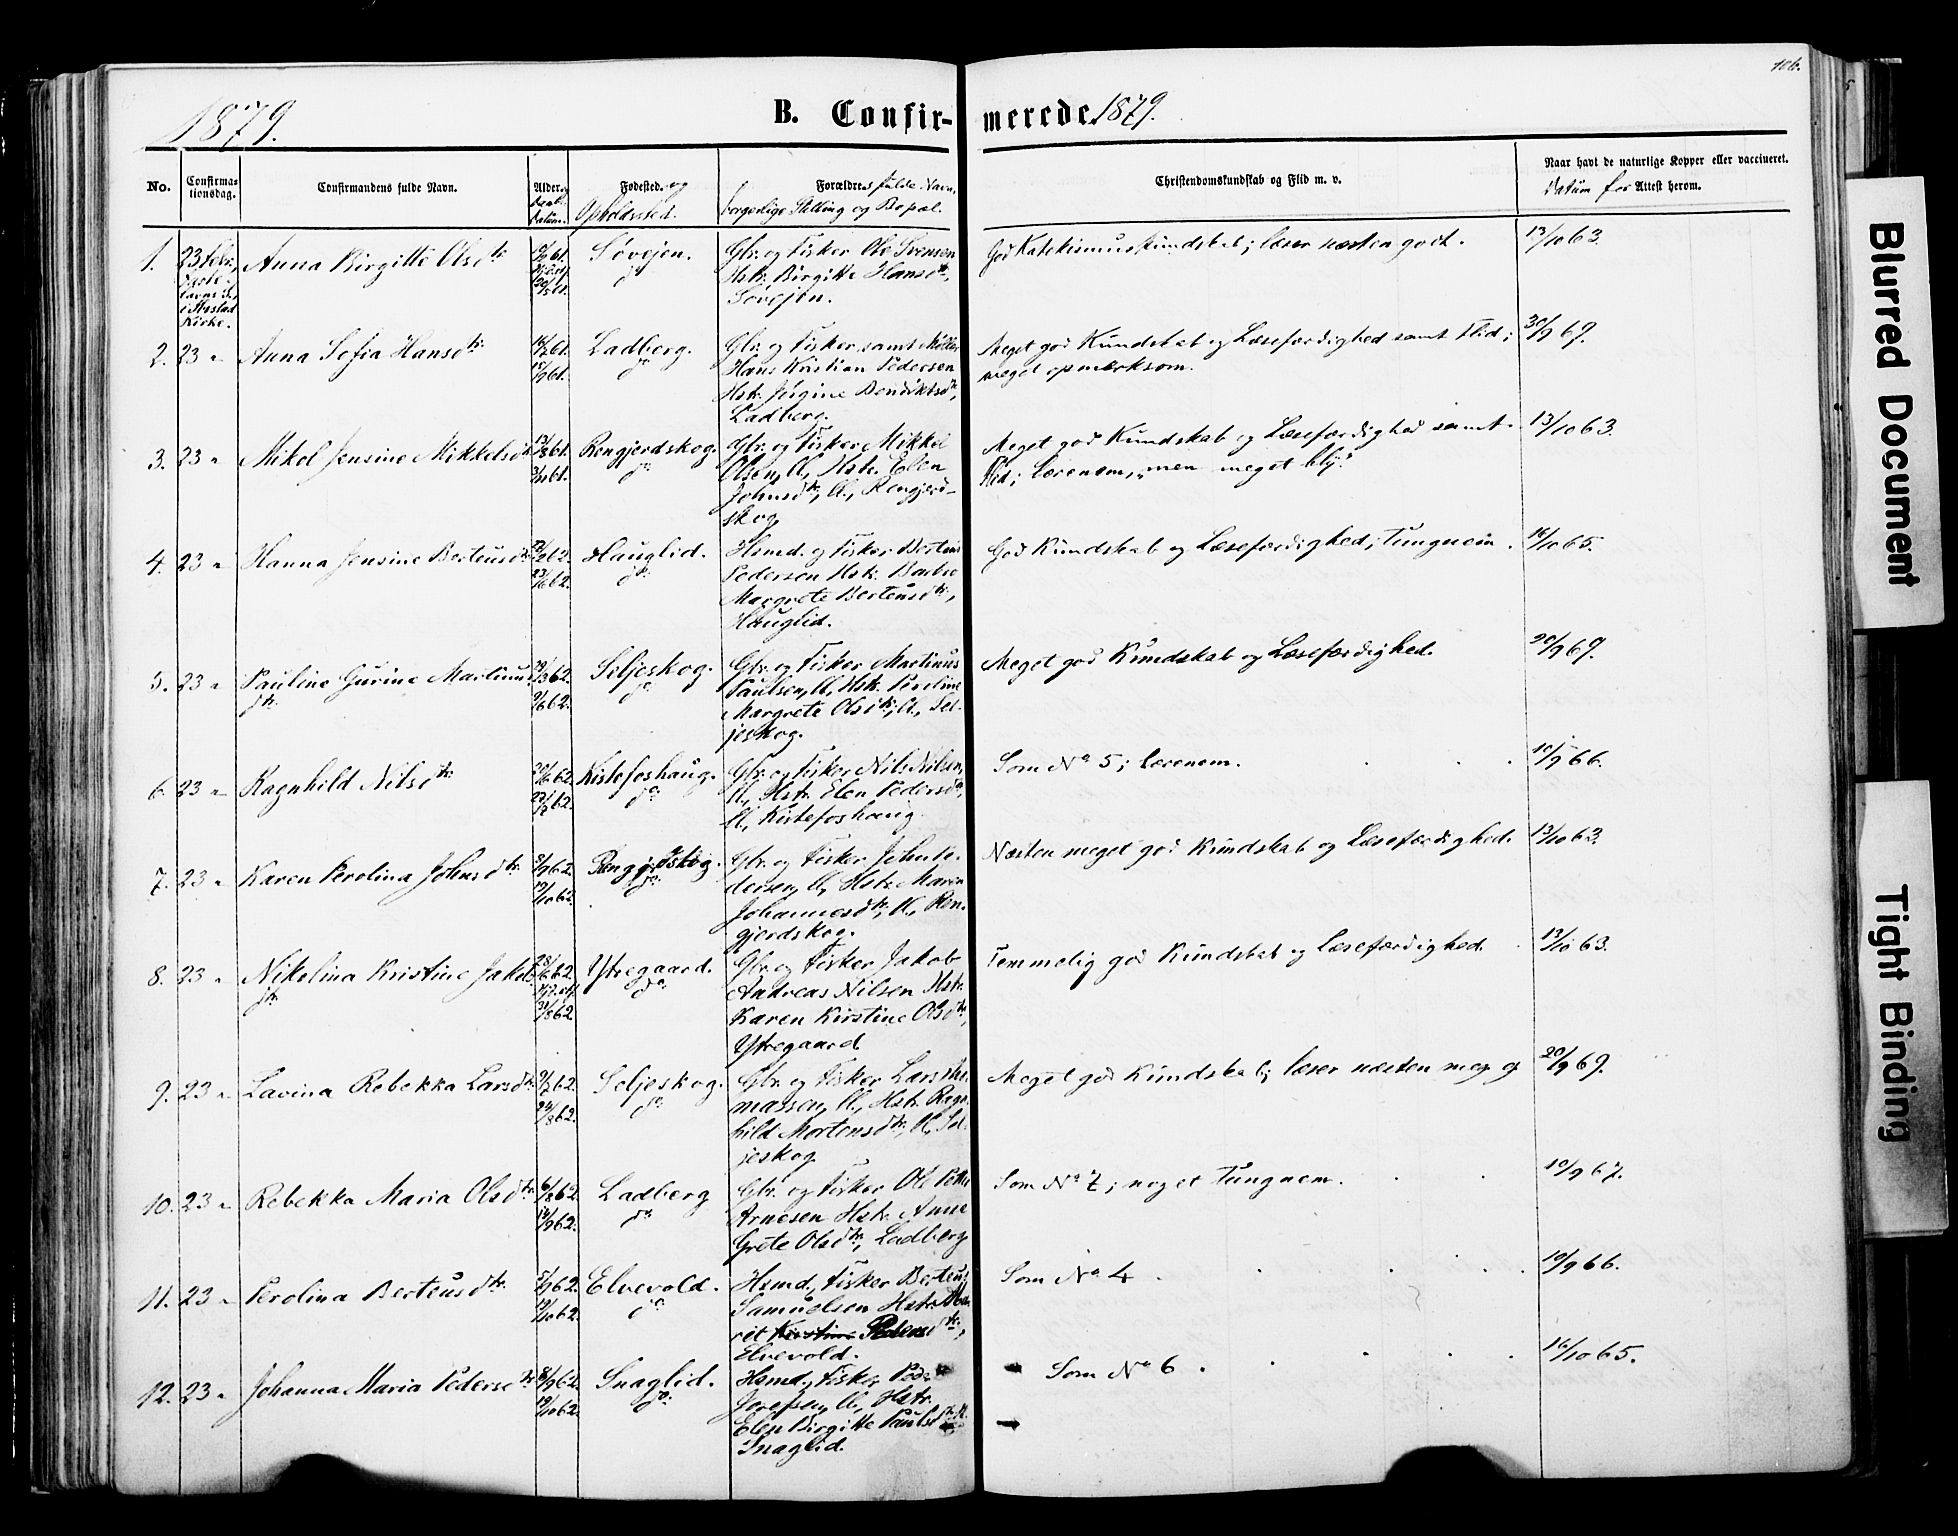 106.
1879.
B. Confir-merede 1879.
No.
Confirma-
tionsdag.
Confirmandens fulde Navn.
Alder og
Daabs
Datum.
Fødested. og
Opholdssted.
Forældres fulde Navn,
borgerlige Stilling og Bopæl.
Christendomskundskab og Flid m. v.
Naar havt de naturlige Kopper eller vaccineret.
Datum for Attest herom.
1.
23 Febr.
i
Kirke.
Anna Birgitte Olsdtr
Søvejen.
do
Gbr. og Fisker Ole Svensen
Hstr. Birgitte Hansdtr,
Søvejen.
God Katekismuskundskab; læser næsten godt.
13/10 63.
2. 23 "
Anna Sofia Hansdtr
Ladberg.
do
Gbr. og Fisker samt Møller
Hans Kristian Pedersen
Hstr. Jørgine Bendiktsdtr,
Ladberg.
Meget god Kundskab og Læsefærdighed samt Flid;
meget opmærksom.
30/9 69.
3. 23 "
Mikol Jensine Mikkelsdtr
13/8 61.
3/11 61.
Rengjerdskog.
do
Gbr. og Fisker Mikkel
Olsen, U., Hstr. Elen
Johnsdtr, U., Rengjerd-
skog.
Meget god Kundskab og Læsefærdighed samt
Flid; lærenem, men meget bly.
13/10 63.
4. 23 "
Hanna Jensine Berteusdtr
Hauglid.
do
Hsmd. og Fisker Berteus
Pedersen Hstr. Barbro
Margrete Berteusdtr,
Hauglid.
God Kundskab og Læsefærdighed; Tungnem.
16/10 65.
5. 23 "
Pauline Gurine Martinus
dtr.
Seljeskog.
do
Gbr. og Fisker Martinus
Paulsen, U., Hstr. Peroline
Margrete Olsdtr, U., Sel-
jeskog.
Meget god Kundskab og Læsefærdighed.
20/9 69.
6. 23 "
Ragnhild Nilsdtr
Kistefoshaug.
do
Gbr. og Fisker Nils Nilsen,
U., Hstr. Elen Pedersdtr,
U., Kistefoshaug.
Som No 5; lærenem.
10/9 66.
7. 23 "
Karen Perolina Johnsdtr
8/9 62.
19/10 62.
Rengjerdskog.
do
Gbr. og Fisker John Pe-
dersen, U., Hstr. Maren
Johannesdtr, U., Ren-
gjerdskog.
Næsten meget god Kundskab og Læsefærdighed.
13/10 63.
8. 23 "
Nikolina Kristine Jakobs
dtr.
28/6 62.
31/8 62.
Ytregaard.
do
Gbr. og Fisker Jakob
Andreas Nilsen Hstr.
Karen Kirstine Olsdtr,
Ytregaard.
Temmelig god Kundskab og Læsefærdighed.
13/10 63.
9. 23 "
Lavina Rebekka Larsdtr
9/7 62.
24/8 62.
Seljeskog.
do
Gbr. og Fisker Lars Tho-
massen, U., Hstr. Ragn-
hild Mortensdtr, U., Sel-
jeskog.
Meget god Kundskab; læser næsten meg. g.
20/9 69.
10. 23 "
Rebekka Maria Olsdtr
6/8 62.
14/9 62.
Ladberg
do
Gbr. og Fisker Ole Peter
Arnesen Hstr. Anne
Grete Olsdtr, Ladberg
Som No 7; noget Tungnem.
10/9 67.
11. 23 "
Perolina Berteusdtr
5/9 62.
19/10 62.
Elvevold.
do
Hsmd., Fisker Berteus
Samuelsen Hstr. Ma-
rit Kirstine Pedersdtr,
Elvevold.
Som No 4
10/9 66.
12. 23 "
Johanna Maria Pedersdtr
8/9 62.
19/10 62.
Snaglid.
do
Hsmd., Fisker Peder
Jerefsen, U., Hstr.
Elen Birgitte Paulsdtr, U.
Snaglid.
Som No 6
16/10 65.
Blurred Document
Tight Binding